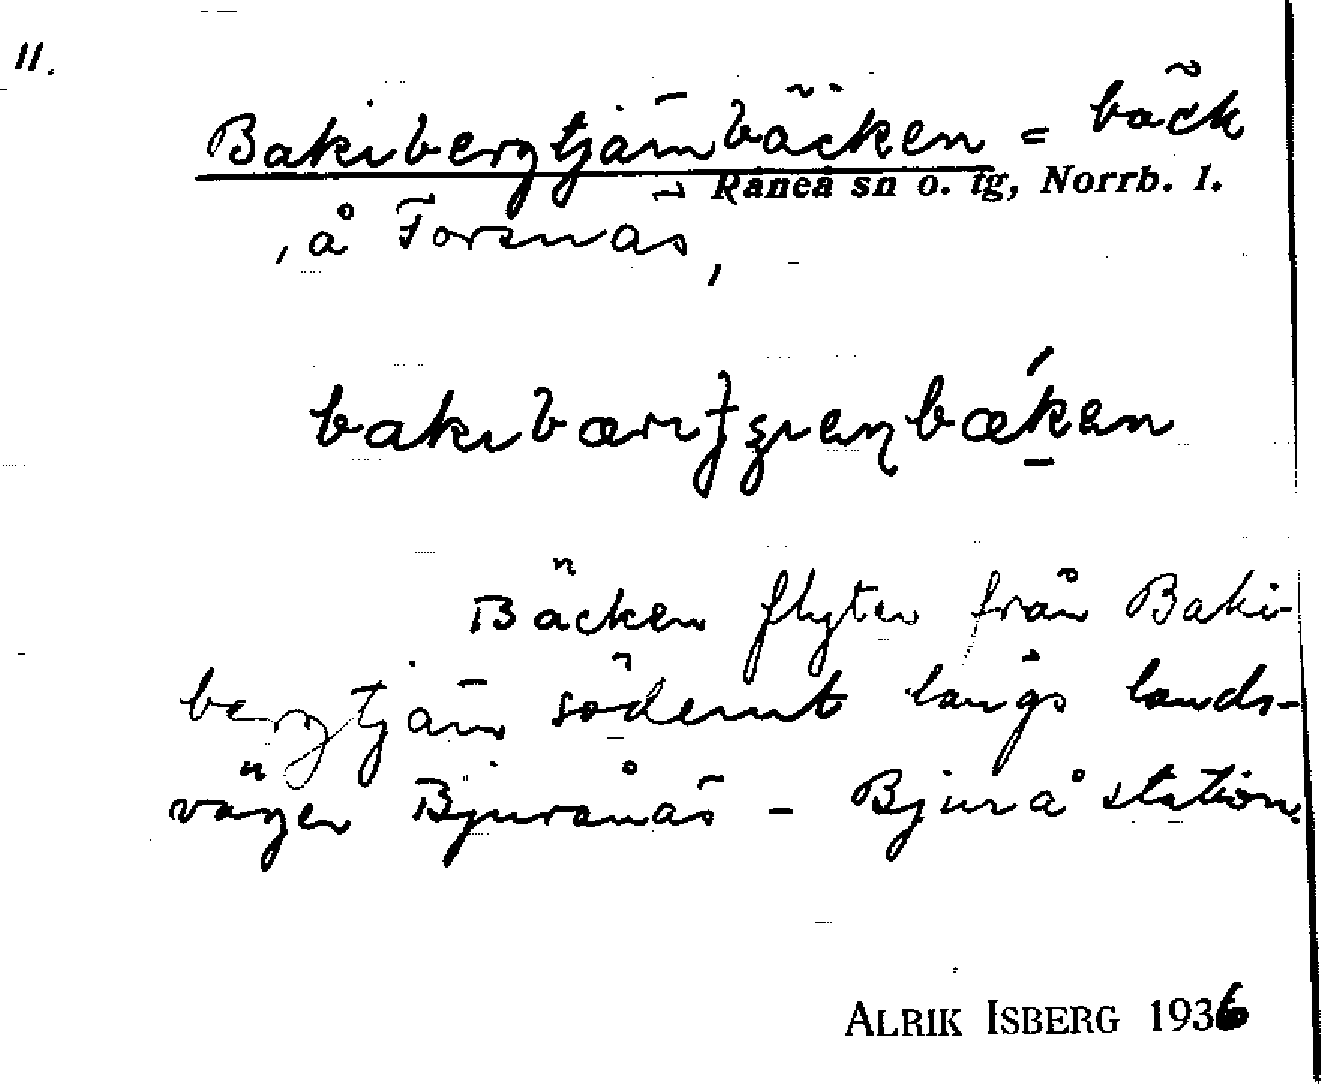 11.
Bakibergtjärnbäcken = bäck
Råneå sn o. tg, Norrb. l.
, å Forsnäs,
Bäcken flyter från Baki-
bergtjärn söderut längs lands-
vägen Bjursnäs - Bjurå station.
ALRIK ISBERG 1936